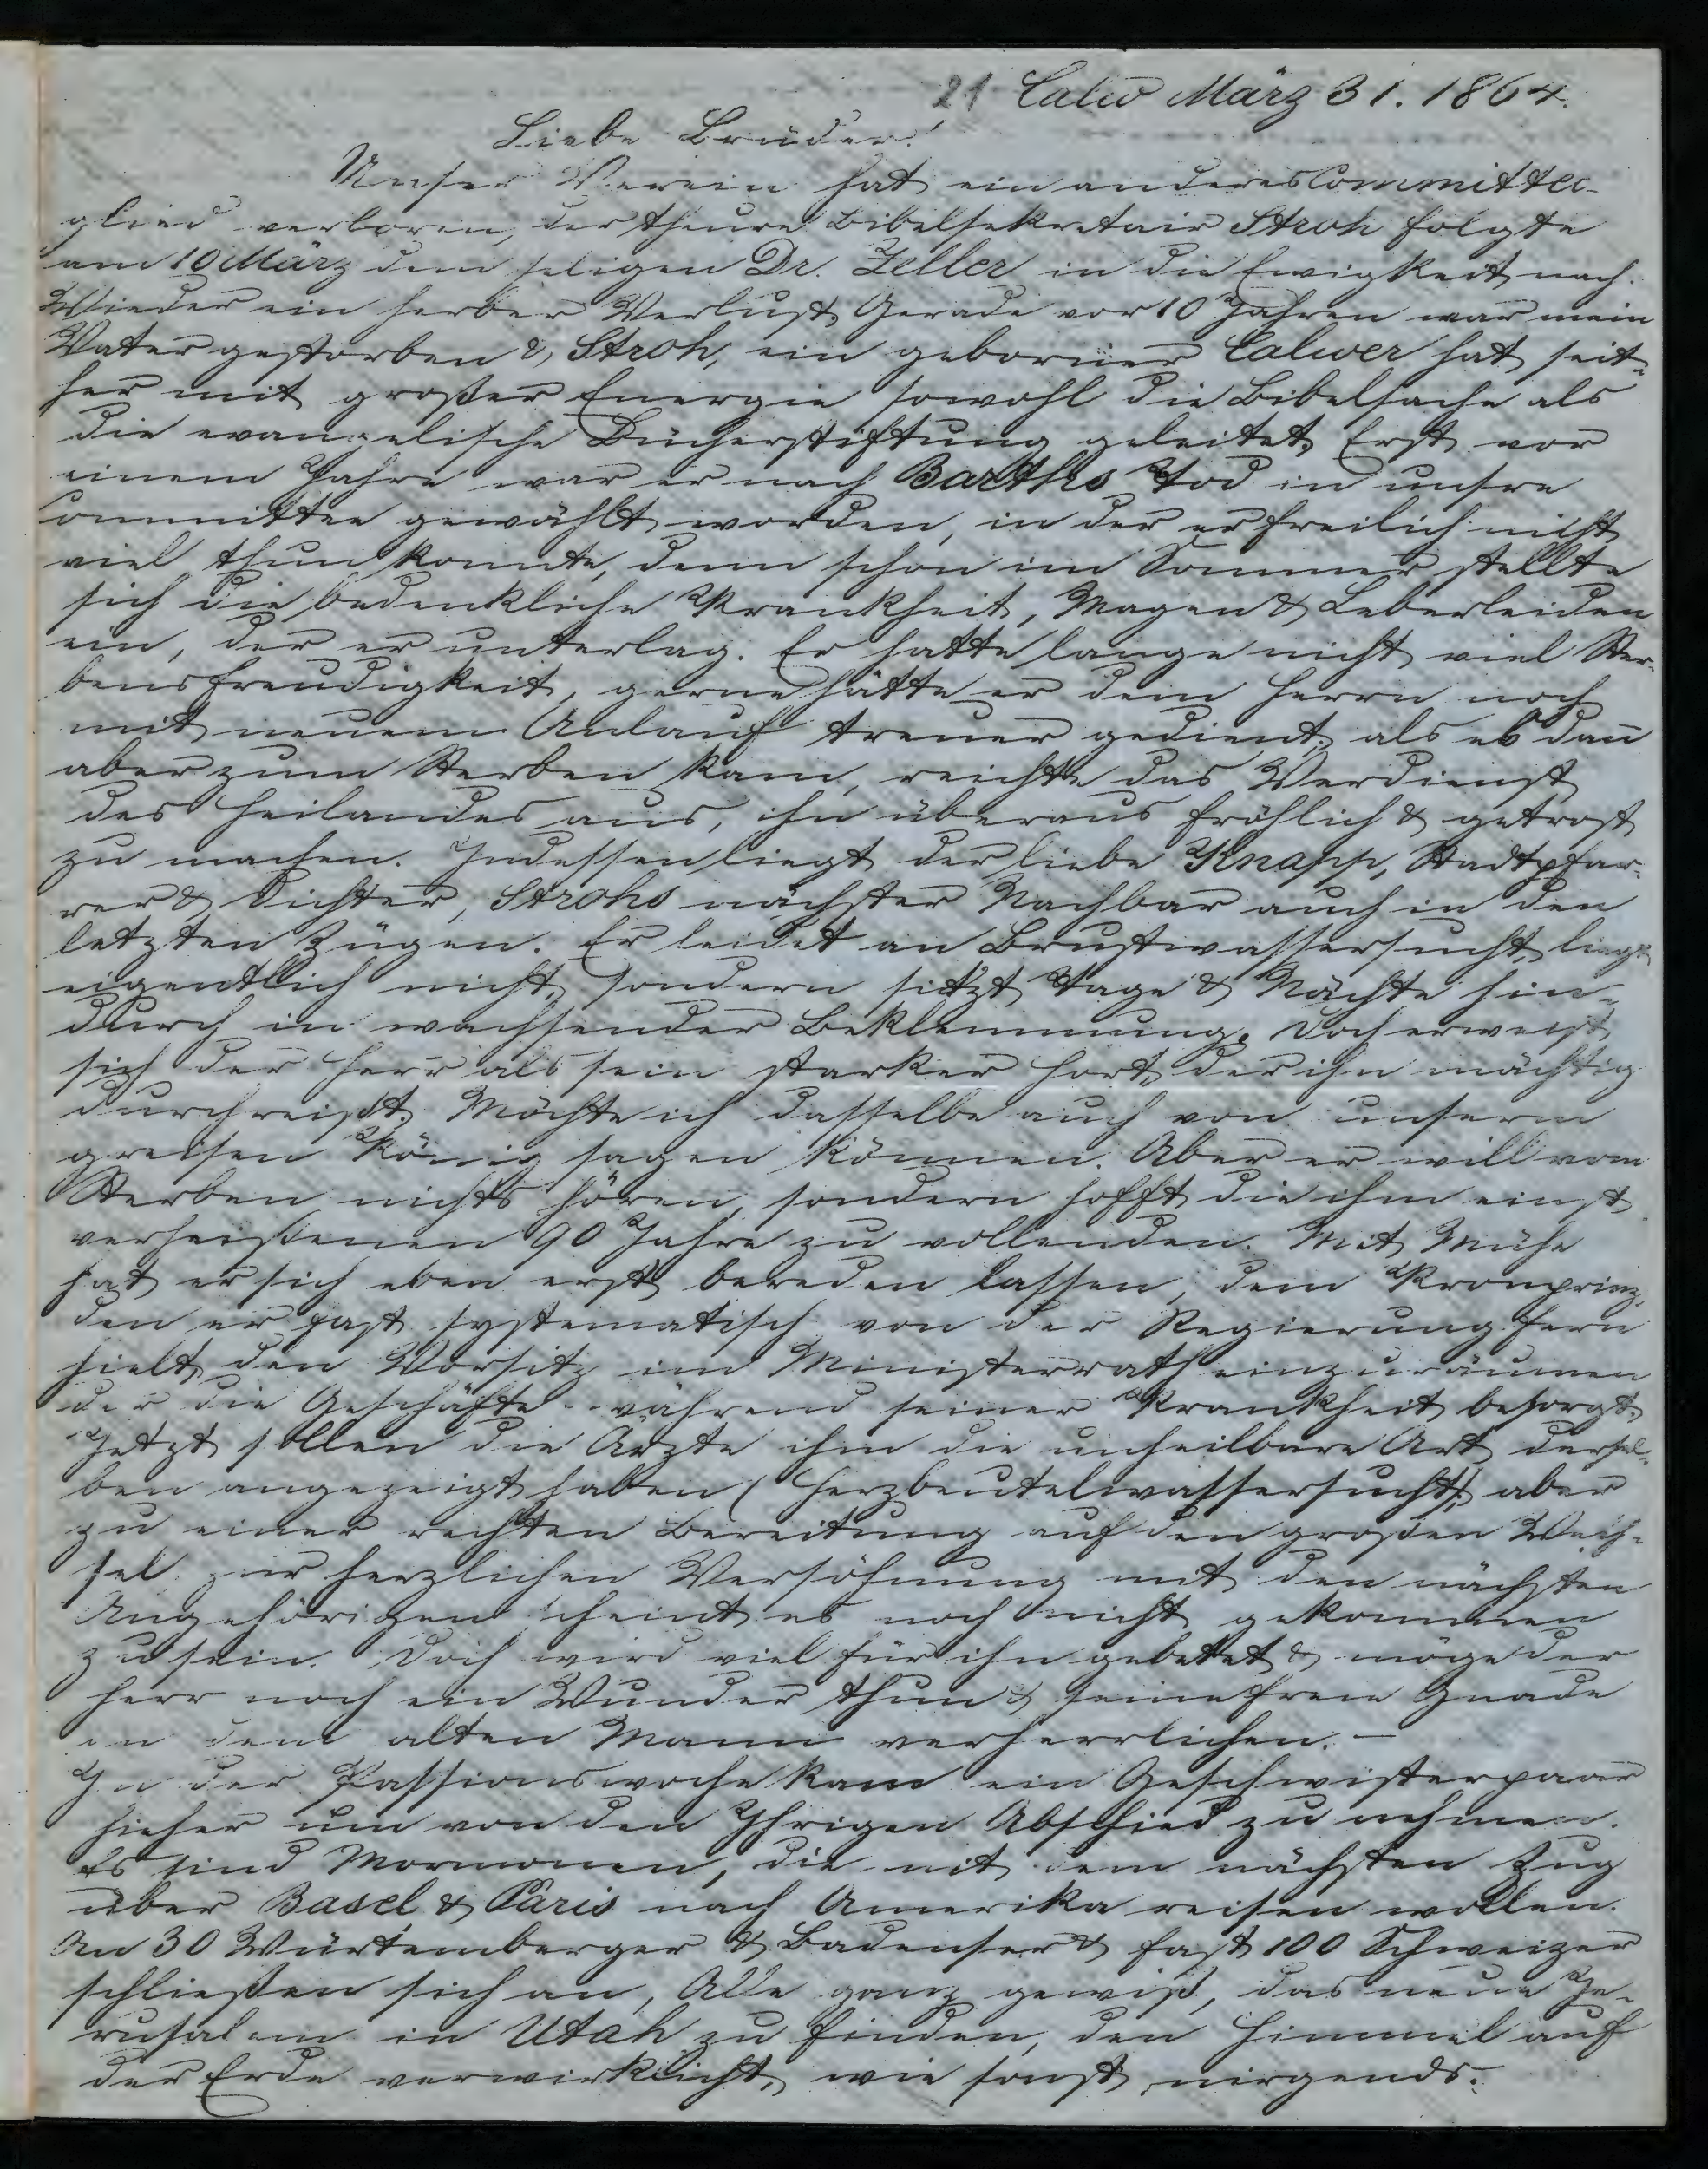 21 Calw März 31. 1864.
Liebe Brüder!
Unser Verein hat ein anderes Committee-
glied verloren, der theure Bibelsekretair Stroh folgte
am 10 März dem seligen Dr. Zeller in die Ewigkeit nach.
Wieder ein herber Verlust. Gerade vor 10 Jahren war mein
Vater gestorben &, Stroh, ein geborner Calwer hat seit-
her mit großer Energie sowohl die Bibelsache als
die evangelische Bücherstiftung geleitet. Erst vor
einem Jahre war er nach Barths Tod in unsre
Committee gewählt worden, in der er freilich nicht
viel thun konnte, denn schon im Sommer stellte
sich die bedenkliche Krankheit, Magen & Leberleiden
ein, der er unterlag. Er hatte lange nicht viel Ster-
bensfreudigkeit, gerne hätte er dem Herrn noch
mit neuem Anlauf treuer gedient; als es dañ
aber zum Sterben kam, reichte das Verdienst
des Heilandes aus, ihn überaus fröhlich & getrost
zu machen. Indessen liegt der liebe Knapp, Stadtpfar-
rer & Dichter, Strohs nächster Nachbar auch in den
letzten Zügen. Er leidet an Brustwassersucht, liegt
eigentlich nicht, sondern sitzt Tage & Nächte hin-
durch in wachsender Beklemmung. Doch erweist
sich der Herr als sein starker Hort, der ihn mächtig
durchreißt. Möchte ich dasselbe auch von unserm
greisen König sagen können. Aber er will vom
Sterben nichts hören, sondern hofft die ihm einst
verheißenen 90 Jahre zu vollenden. Mit Mühe
hat er sich eben erst bereden lassen, dem Kronprinz,
den er fast systematisch von der Regierung fern
hielt, den Vorsitz im Ministerrath einzuräumen
der die Geschäfte während seiner Krankheit besorgt.
Jetzt sollen die Arzte ihm die unheilbare Art dersel-
ben angezeigt haben (Herzbeutelwassersucht); aber
zu einer rechten Bereitung auf den großen Wech-
sel zur herzlichen Versöhnung mit den nächsten
Angehörigen scheint es noch nicht gekommen
zu sein. Doch wird viel für ihn gebetet & möge der
Herr noch ein Wunder thun & seine freie Gnade
an dem alten Mann verherrlichen. —
In der Passionswoche kam ein Geschwisterpaar
hieher um von den Ihrigen Abschied zu nehmen.
Es sind Mormonen, die mit dem nächsten Zug
über Basel & Paris nach Amerika reisen wollen.
An 30 Würtemberger & Badenser & fast 100 Schweizer
schließen sich an, Alle ganz gewiß, das neue Je-
rusalem in Utah zu finden, den Himmel auf
der Erde verwirklicht, wie sonst nirgends.